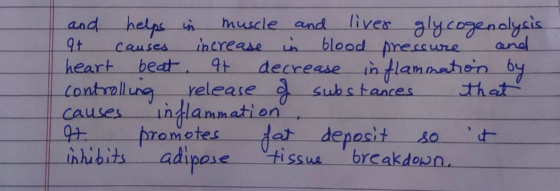 and helps in muscle and liver glycogenolysis
It causes increase in blood pressure and
heart beat. It decrease inflammation by
controlling release of substances that
causes inflammation.
It promotes fat deposit so it
inhibits adipose tissue breakdown.